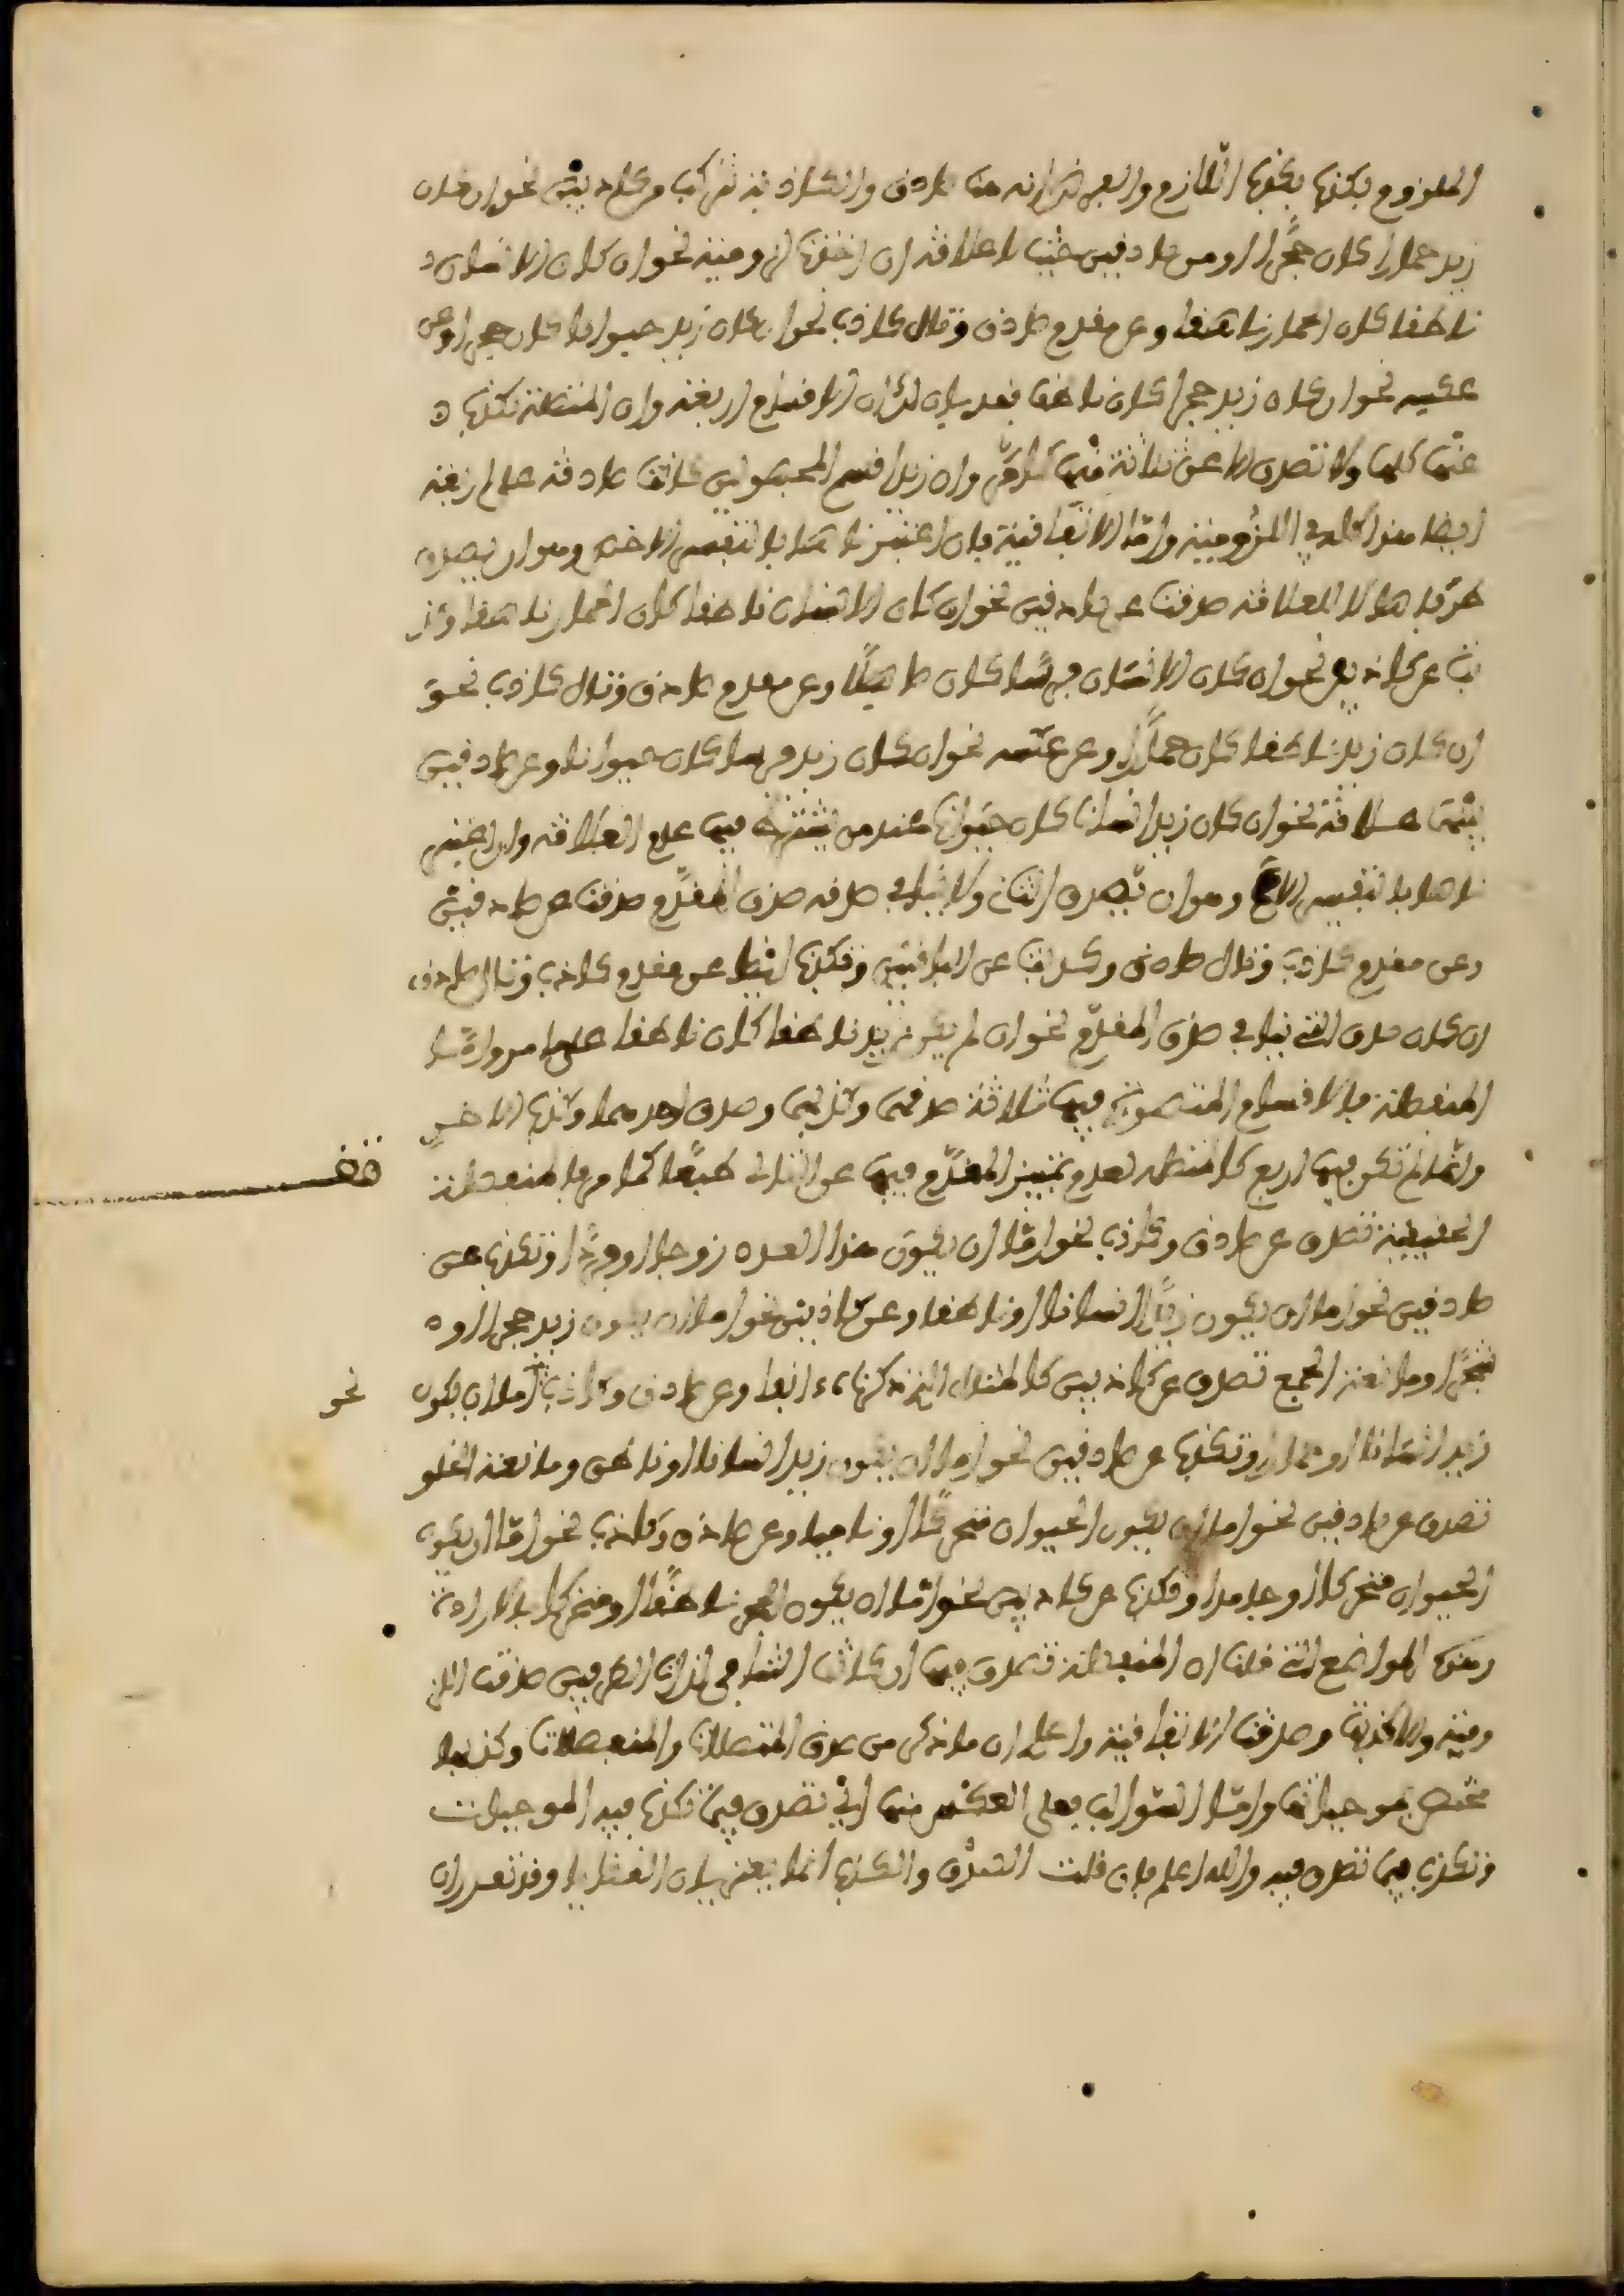 الملزوم بكذب اللازم والعرض انه هنا صادق والكاذبة تتركب من كاذبين نحو ان كان
زيد حمارا كان حجرا او من صادقين حيث لا علاقة ان اخذت لزومية نحو ان كان الانسان
ناطقا كان الحمار ناهقا وعن مقدم صادق وتال كاذب نحو ان كان زيد حيوانا كان حجرا وعن
عكسه نحو ان كان زيد حجرا كان ناطقا فقد بان لك ان الاقسام اربعة وان المتصلة تكذب
عنها كلها ولا تصدق الا عن ثلاثة منها كما مر وان زيدا قسم المحصورتين كانت صادقة على اربعة
ايضا هذا كله في اللزومية واما الاتفاقية فان اعتبرناها بالتفسير الاخص وهو ان يصدق
طرفاها لا لعلاقة صدقت عن صادقين نحو ان كان الانسان ناطقا كان الحمار ناهقا وكذ
بت عن كاذبين نحو ان كان الانسان فرسا كان صاهلا وعن مقدم صادق وتال كاذب نحو
ان كان زيد ناطقا كان حمارا وعن عكسه نحو ان كان زيد فرسا كان حيوانا وعن صادقين
بينهما علاقة نحو ان كان زيد انسانا كان حيوانا عند من يشترط فيها عدم العلاقة وان اعتبر
ناها بالتفسير الاعم وهو ان يصدق الثاني ولا ينافي صدقه صدق المقدم صدقت عن صادقين
وعن مقدم كاذب وتال صادق وكذبت عن الباقيين وتكذب ايضا عن مقدم كاذب وتال صادق
ان كان صدق التالي ينافي صدق المقدم نحو ان لم يكن زيد ناطقا كان ناطقا على ما مر واما
المنفصلة فالاقسام المتصورة فيها ثلاثة صدقهما وكذبهما وصدق احدهما وكذب الاخر
وانما لم تكن فيها اربع كالمتصلة لعدم تمييز المقدم فيها عن التالي طبعا كما مر فالمنفصلة
الحقيقية تصدق عن صادق وكاذب نحو اما ان يكون هذا العدد زوجا او فردا وتكذب عن
صادقين نحو اما ان يكون زيد انسانا او ناطقا وعن كاذبين نحو اما ان يكون زيد حجرا او
شجرا ومانعة الجمع تصدق عن كاذبين كالمثال الذي ذكرناه انفا وعن صادق وكاذب نحو اما ان يكون
زيد انسانا او حمارا وتكذب عن صادقين نحو اما ان يكون زيد انسانا او ناطقا ومانعة الخلو
تصدق عن صادقين نحو اما ان يكون الحيوان متحركا او ناميا وعن صادق وكاذب نحو اما ان يكون
الحيوان متحركا او جامدا وتكذب عن كاذبين نحو اما ان يكون الحجر ناطقا او متحركا بالارادة
وهذه المواضع التي قلنا ان المنفصلة تصدق فيها ان كان التنافي لذات الطرفين صدقت اللز
ومية والا كذبت وصدقت الاتفاقية واعلم ان ما ذكر من صدق المتصلات والمنفصلات وكذبها
مختص بموجباتها واما السوالب فعلى العكس منها اي تصدق فيما تكذب فيه الموجبات
وتكذب فيما تصدق فيه والله اعلم فان قلت الصدق والكذب انما يعرض بيان القضايا وقد تقدم ان
نحو